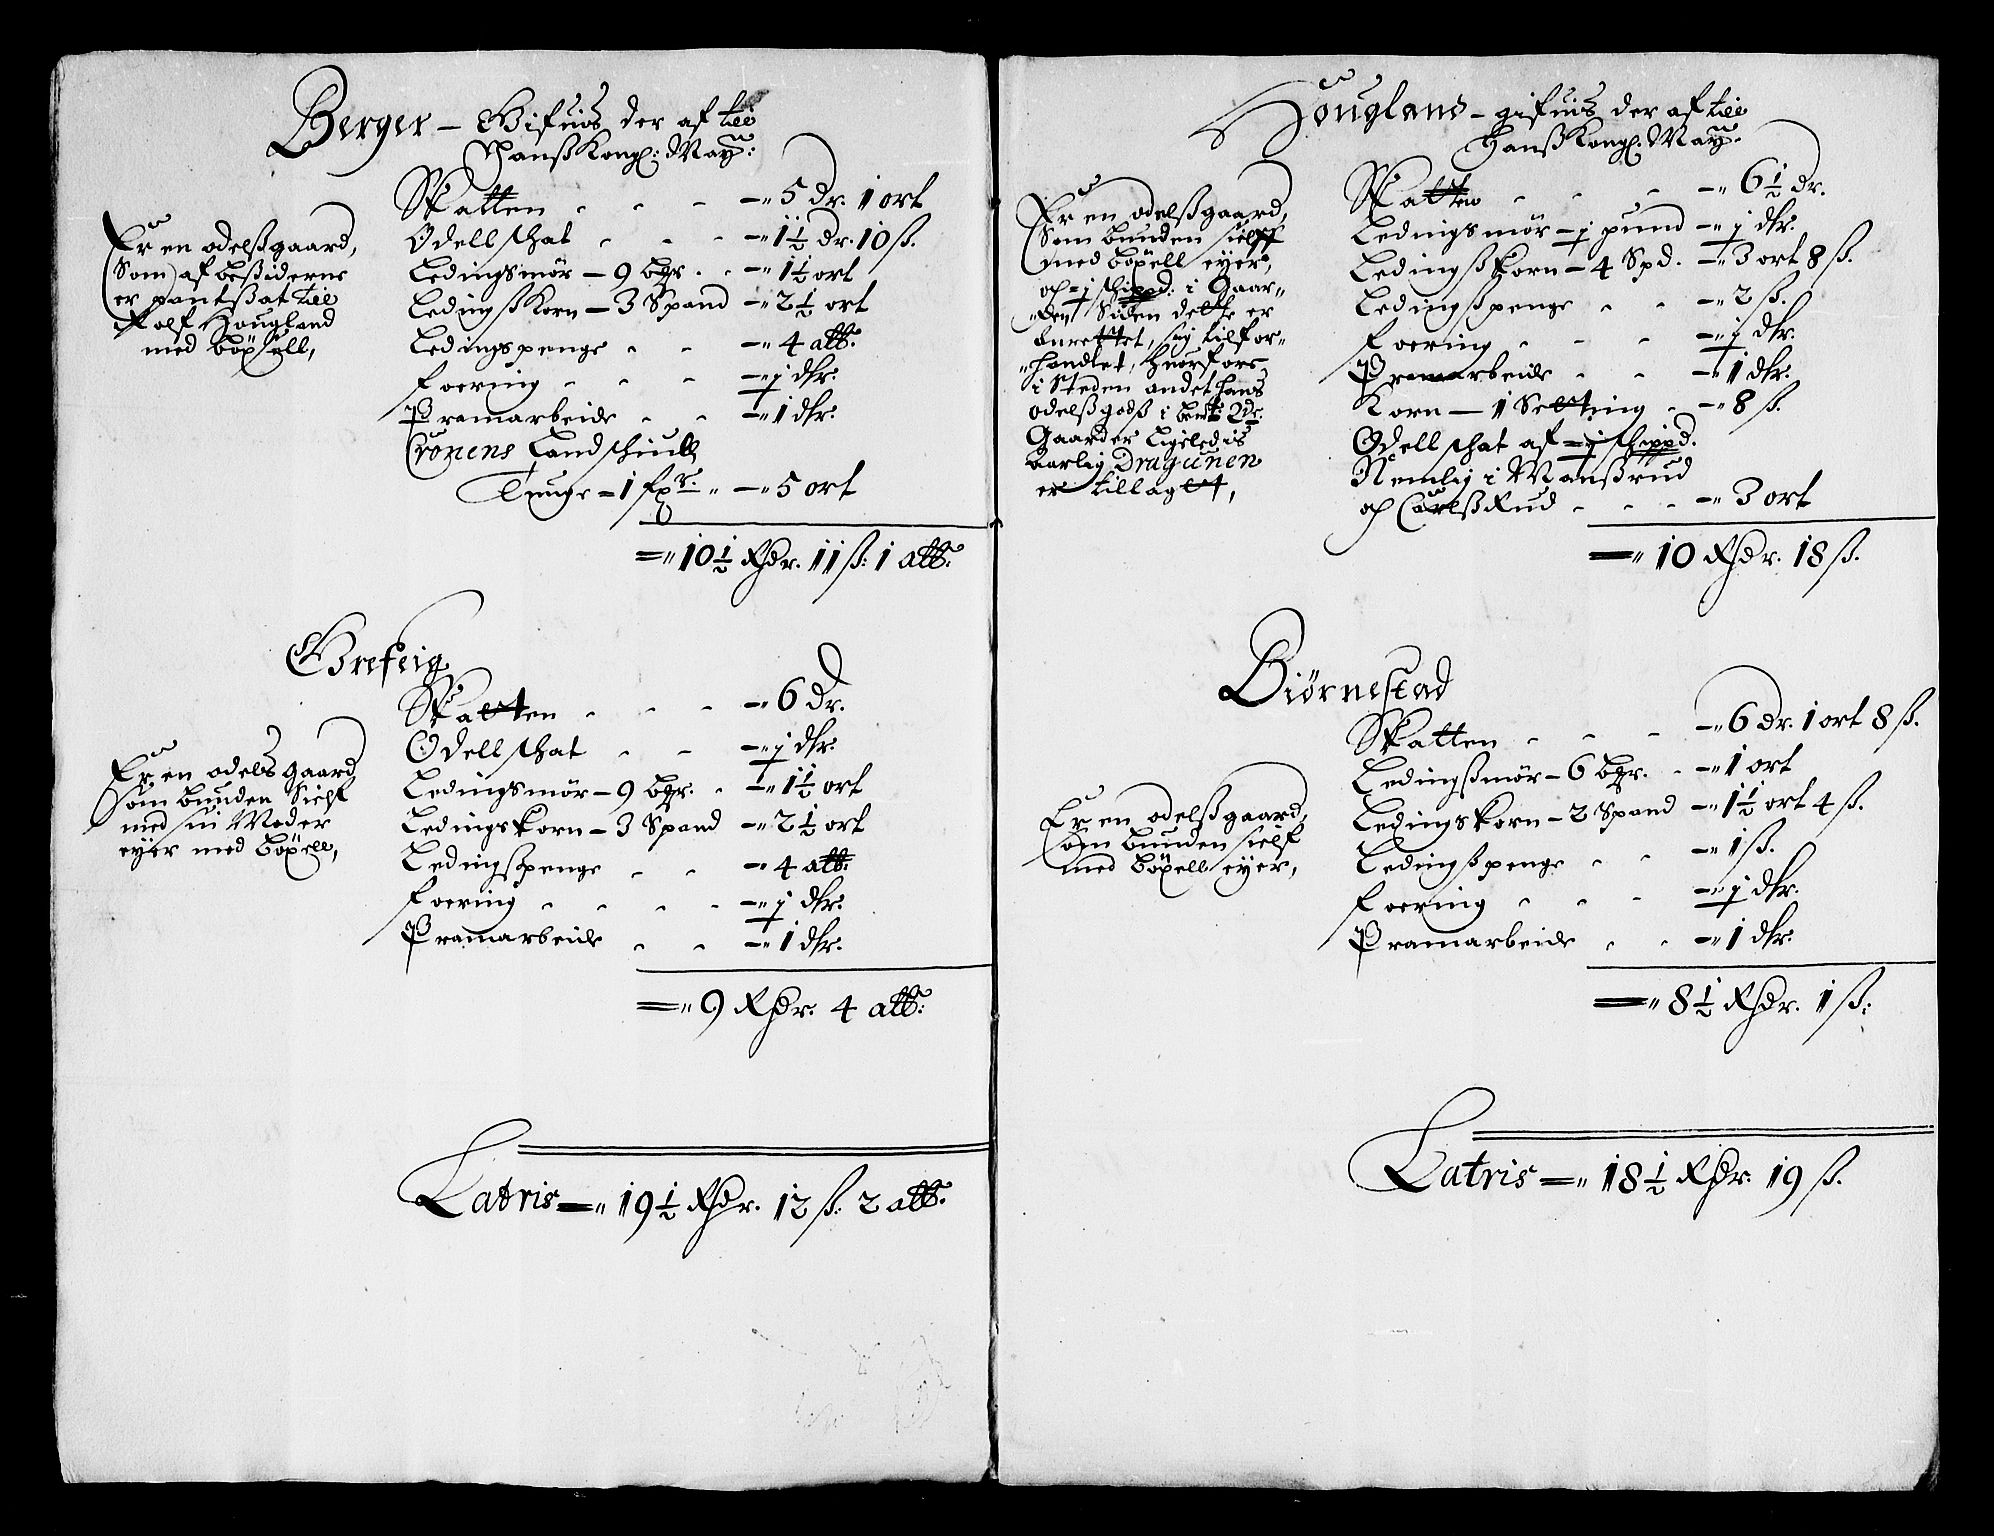 Berger – Gifuis der af till
Hanß Kongl: May:
Er en odelßgaard,
Som af beßiderne
er pantßat till
Rolf Hougland
med böxell,
Skatten – 5 dr. 1 ort
Odellschat – 1½ dr. 10 ß.
Ledingsmör – 9 bgr. – 1½ ort
Ledingßkorn – 3 Spand – 2½ ort
Ledingspenge – 4 alb:
Foering – ½ dlr:
Pramarbeide – 1 dlr:
Cronens Landschiuld
Tunge – 1 fxr. – 5 ort
10½ Rhdr. 11 ß: 1 alb:
Grefeig
Er en odels gaard
Som bunden Sielf
med sin Moder
eyer med böxell,
Skatten – 6 dr.
Odellschat – ½ dlr:
Ledingsmör – 9 bgr. – 1½ ort
Ledingskorn – 3 Spand – 2½ ort
Ledingßpenge – 4 alb:
Foering – ½ dlr:
Pramarbeide – 1 dlr:
9 Rhdr. 4 alb:
Latris – 19½ Rhdr. 12 ß: 2 alb:
Houglans – gifuis der af till
Hanß Kongl: May:
Er en odelßgaard,
Som bunden sielff
med böxell eyer,
och ½ schippd: i Gaar-
den Siden dette er
anrettet, sig tilfor-
handlet, huorfore
i Steden andet hans
odelßgodß i bente 2de
Gaarder ligeledis
aarlig Dragunen
er tillaget,
Skatten – 6½ dr.
Ledingsmör – ½ pund – ½ dlr:
Ledingßkorn – 4 Spd. – 3 ort 8 ß.
Ledingßpenge – 2 ß.
Foering – ½ dlr:
Pramarbeide – 1 dlr:
Korn – 1 Setting – 8 ß.
Odellschat af ½ schippd.
Nemlig i Manßrud
och Carlßrud – 3 ort
10 Rhdr. 18 ß.
Biörnestad
Er en odelßgaard,
som bunden sielf
med böxell eyer,
Skatten – 6 dr. 1 ort 8 ß.
Ledingßmör – 6 bgr. – 1 ort
Ledingskorn – 2 Spand – 1½ ort 4 ß.
Ledingßpenge – 1 ß.
Foering – ½ dlr:
Pramarbeide – 1 dlr:
8½ Rhdr. 1 ß:
Latris – 18½ Rhdr. 19 ß.